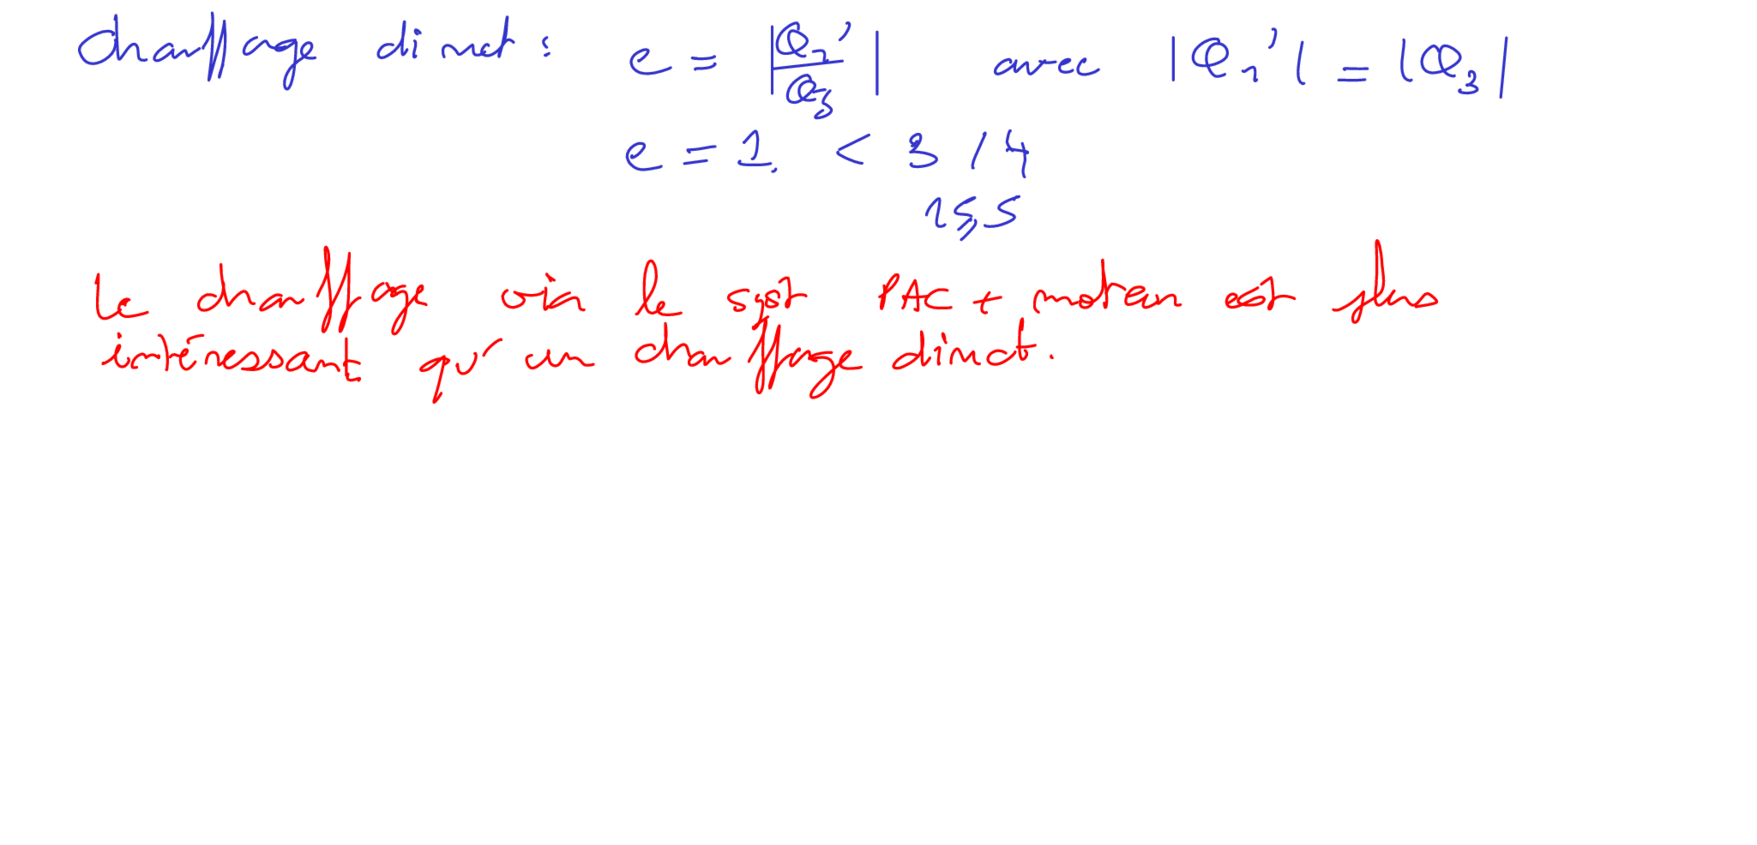 Chauffage direct : e = |Q1'/Q3| avec |Q1'| = |Q3|
e = 1. < 3 / 4
15,5
Le chauffage via le syst PAC + moteur est plus
intéressant qu'un chauffage direct.